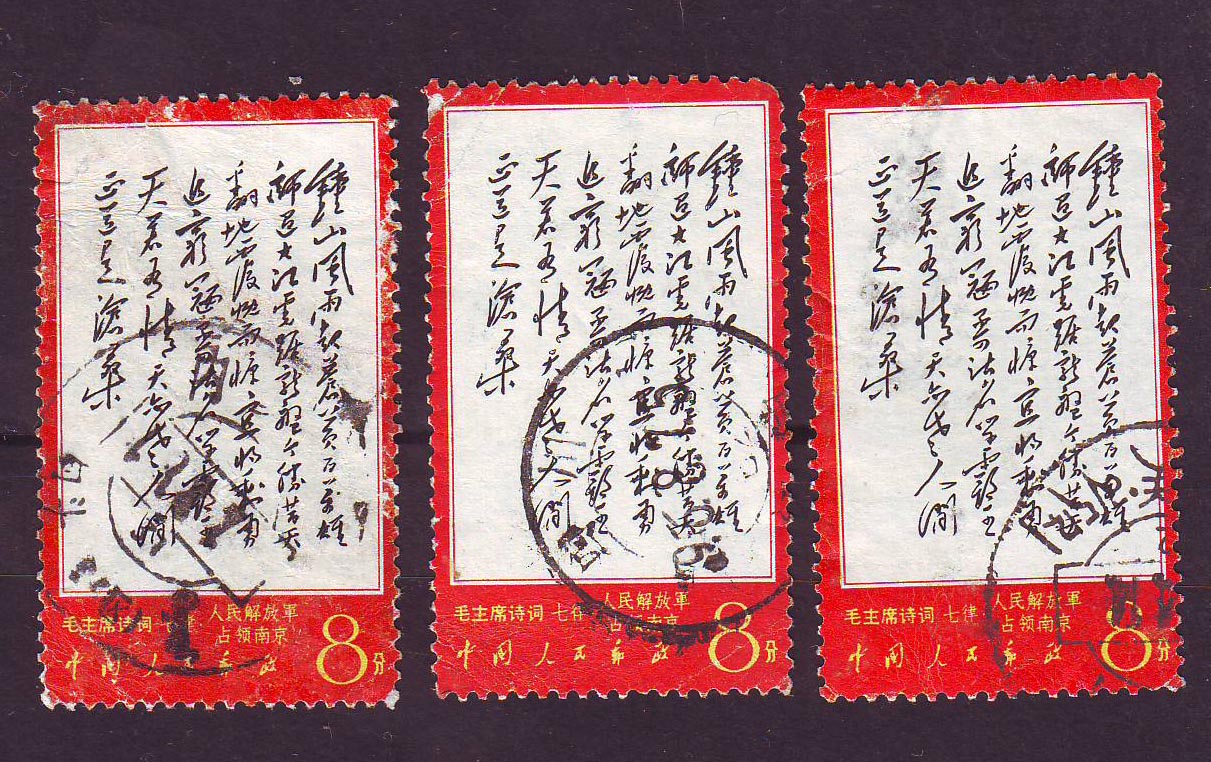 鍾山風雨起蒼黃百萬雄
師过大江虎踞龍盤今勝昔天
翻地覆慨而慷宜將剩勇
追窮寇不可沽名學霸王
天若有情天亦老人間
正道是滄桑
毛主席诗词 七律 人民解放軍
占领南京
中国人民邮政 8分
鍾山風雨起蒼黃百萬雄
師过大江虎踞龍盤今勝昔天
翻地覆慨而慷宜將剩勇
追窮寇不可沽名學霸王
天若有情天亦老人間
正道是滄桑
毛主席诗词 七律 人民解放軍
占领南京
中国人民邮政 8分
鍾山風雨起蒼黃百萬雄
師过大江虎踞龍盤今勝昔天
翻地覆慨而慷宜將剩勇
追窮寇不可沽名學霸王
天若有情天亦老人間
正道是滄桑
毛主席诗词 七律 人民解放軍
占领南京
中国人民邮政 8分